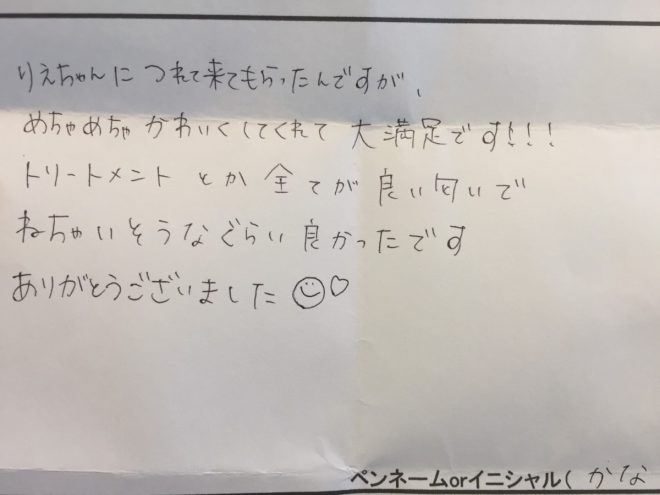 りえちゃんに つれて来てもらったんですが、
めちゃめちゃ かわいくしてくれて 大満足です!!!
トリートメント とか 全てが 良い匂いで
ねちゃいそうなぐらい 良かったです
ありがとうございました
ペンネームorイニシャル( かな